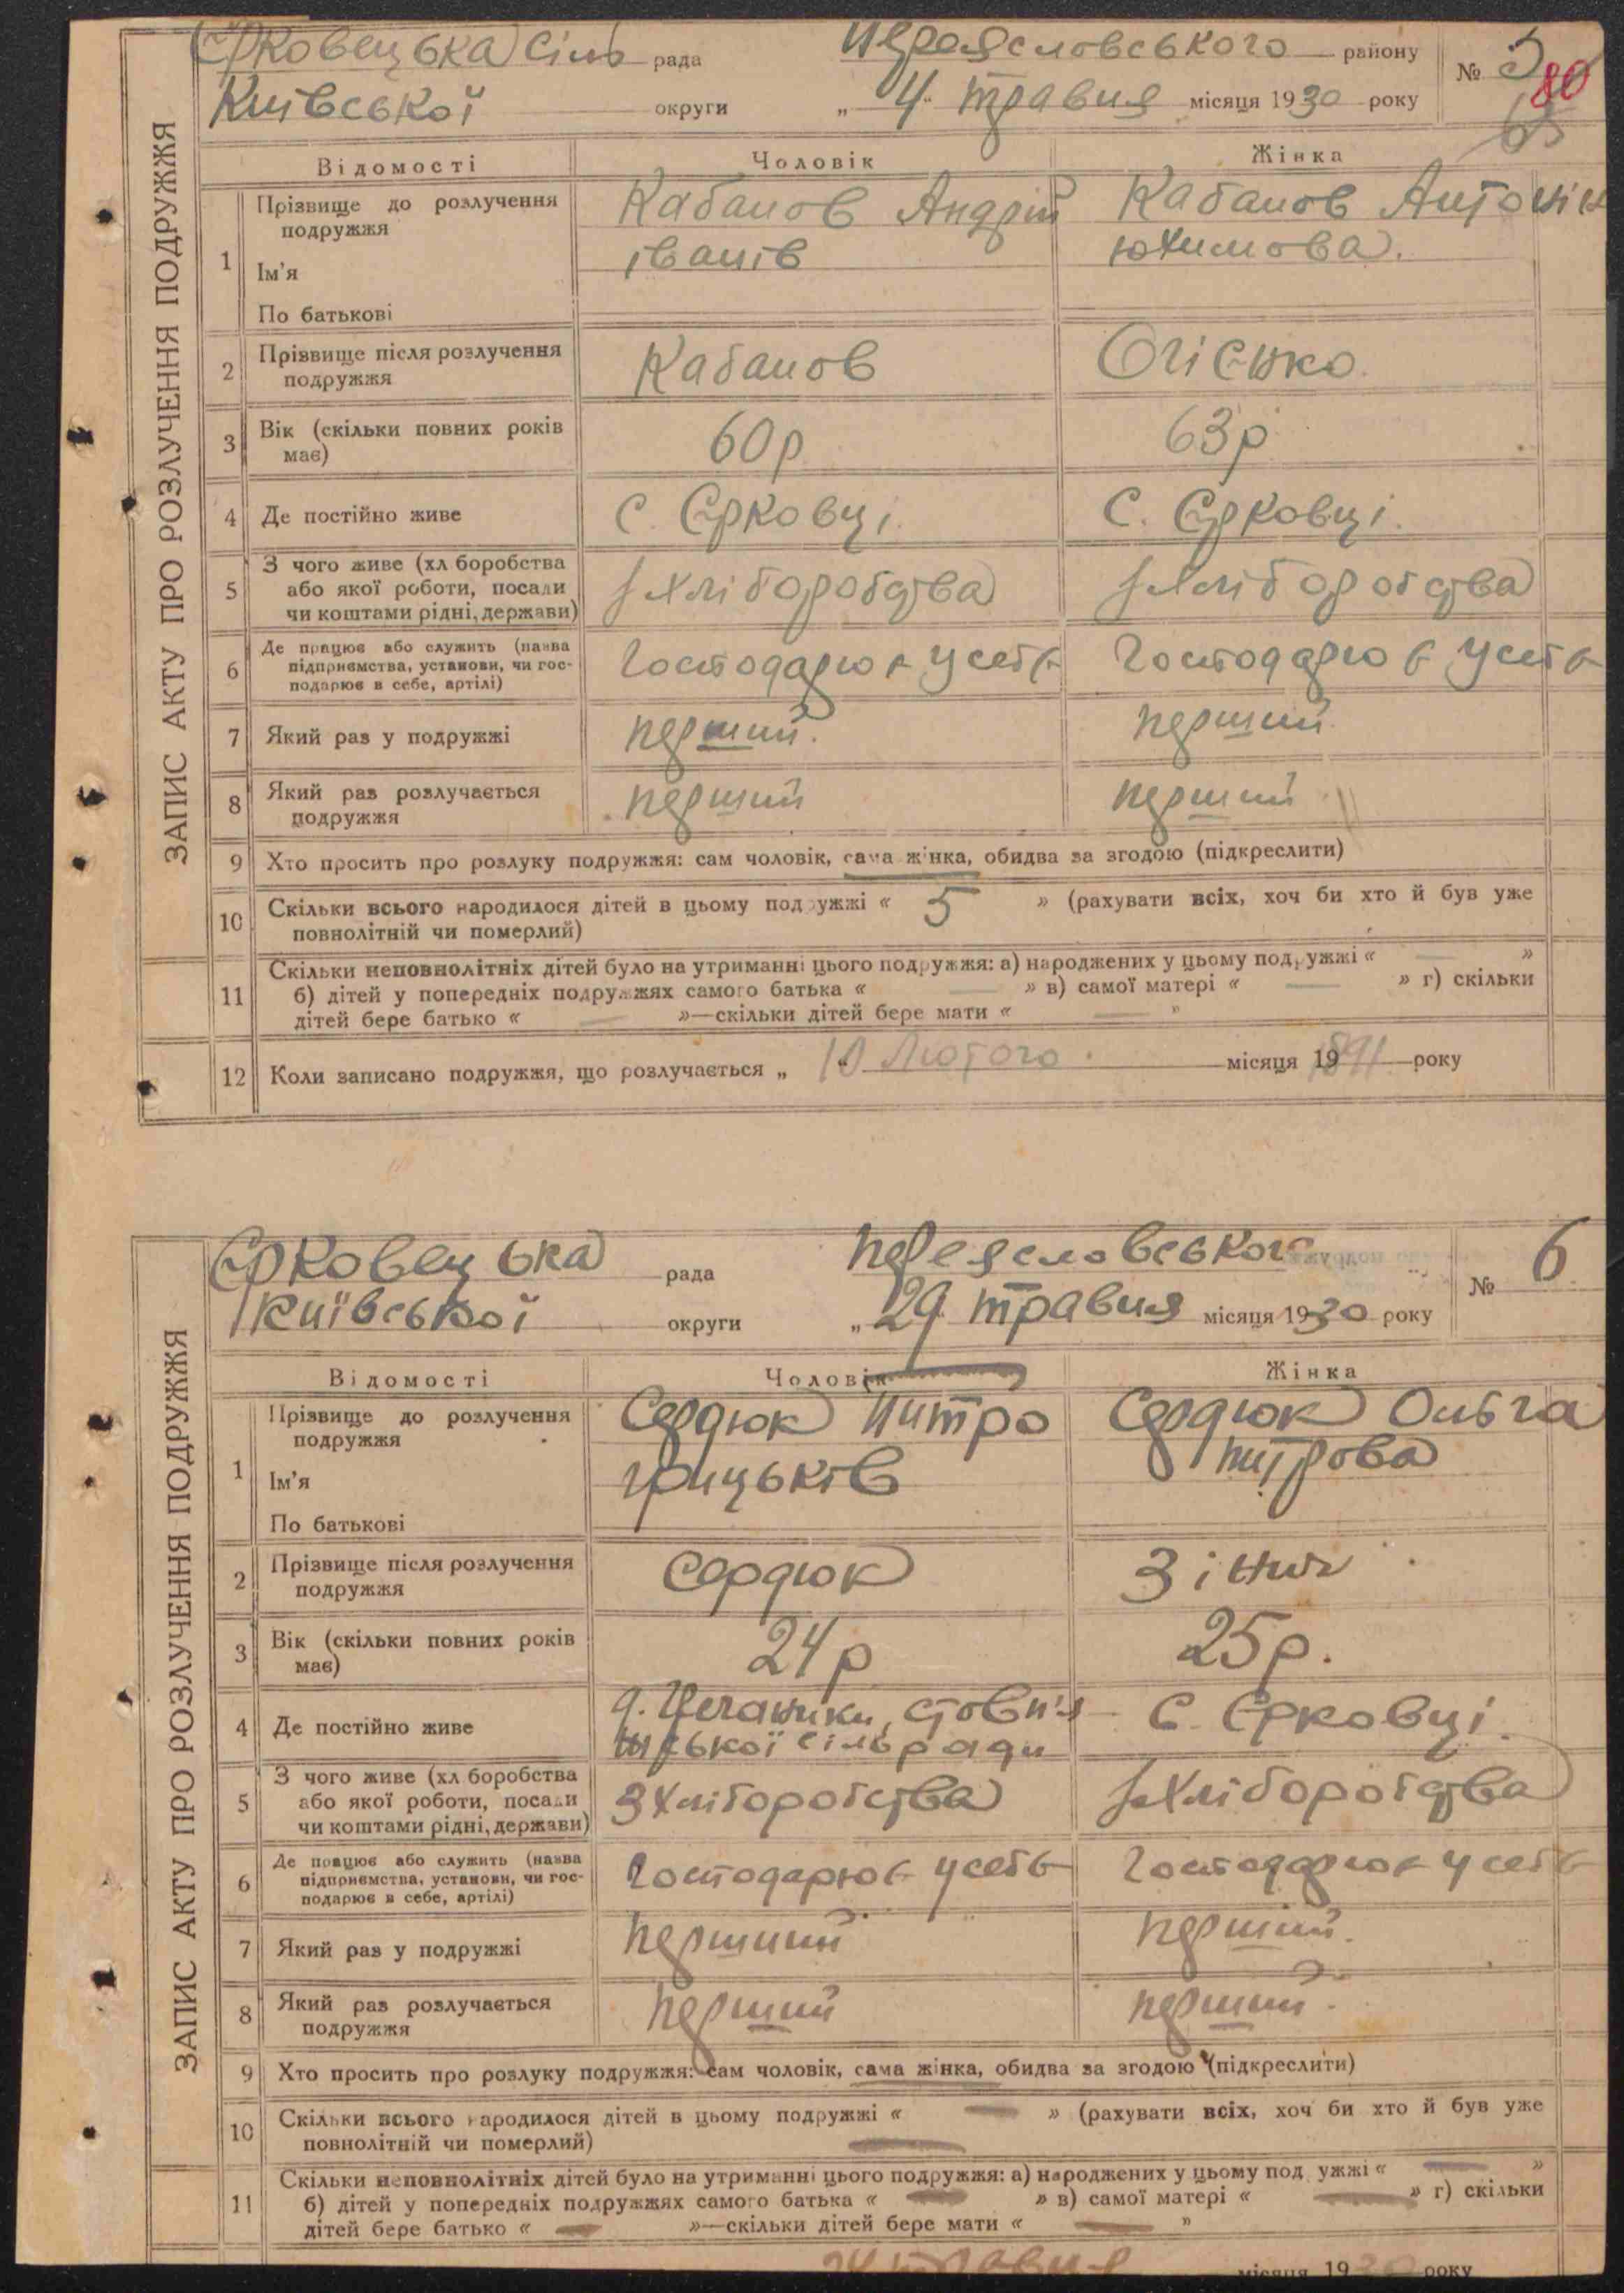 ЗАПИС АКТУ ПРО РОЗЛУЧЕННЯ ПОДРУЖЖЯ
Єрковецька сіль рада Переясловського району № 5 80
Київської округи „ 4 “ травня місяця 1930 року
Відомості Чоловік Жінка
1 Прізвище до розлучення подружжя Кабанов Андрій Кабанов Антонін
Ім'я іванів юхимова.
По батькові
2 Прізвище після розлучення подружжя Кабанов Огієнко
3 Вік (скільки повних років має) 60р 63р
4 Де постійно живе С. Єрковці. С. Єрковці.
5 З чого живе (хл боробства або якої роботи, посади чи коштами рідні, держави) з хліборобства з хліборобства
6 Де працює або служить (назва підприємства, установи, чи господарює в себе, артілі) Господарює у себе Господарює у себе
7 Який раз у подружжі перший. перший.
8 Який раз розлучається подружжя перший перший
9 Хто просить про розлуку подружжя: сам чоловік, сама жінка, обидва за згодою (підкреслити)
10 Скільки всього народилося дітей в цьому подружжі « 5 » (рахувати всіх, хоч би хто й був уже
повнолітній чи померлий)
11 Скільки неповнолітніх дітей було на утриманні цього подружжя: а) народжених у цьому подружжі « — »
б) дітей у попередніх подружжях самого батька « — » в) самої матері « — » г) скільки
дітей бере батько « — »—скільки дітей бере мати « — »
12 Коли записано подружжя, що розлучається „ 10 “ Лютого місяця 19 1891 року
ЗАПИС АКТУ ПРО РОЗЛУЧЕННЯ ПОДРУЖЖЯ
Єрковецька рада Переясловського № 6
Київської округи „ 29 травня місяця 1930 року
Відомості Чоловік Жінка
1 Прізвище до розлучення подружжя Сердюк Митро Сердюк Ольга
Ім'я грицьків митрова
По батькові
2 Прізвище після розлучення подружжя Сердюк Зінич
3 Вік (скільки повних років має) 24р 25р.
4 Де постійно живе сільради С. Єрковці.
5 З чого живе (хл боробства або якої роботи, посади чи коштами рідні, держави) З хліборобства з хліборобства
6 Де працює або служить (назва підприємства, установи, чи господарює в себе, артілі) Господарює у себе Господарює у себе
7 Який раз у подружжі перший перший.
8 Який раз розлучається подружжя перший перший.
9 Хто просить про розлуку подружжя: сам чоловік, сама жінка, обидва за згодою (підкреслити)
10 Скільки всього народилося дітей в цьому подружжі « — » (рахувати всіх, хоч би хто й був уже
повнолітній чи померлий)
11 Скільки неповнолітніх дітей було на утриманні цього подружжя: а) народжених у цьому подружжі « — »
б) дітей у попередніх подружжях самого батька « — » в) самої матері « — » г) скільки
дітей бере батько « — »—скільки дітей бере мати « — »
травня місяця 1930 року